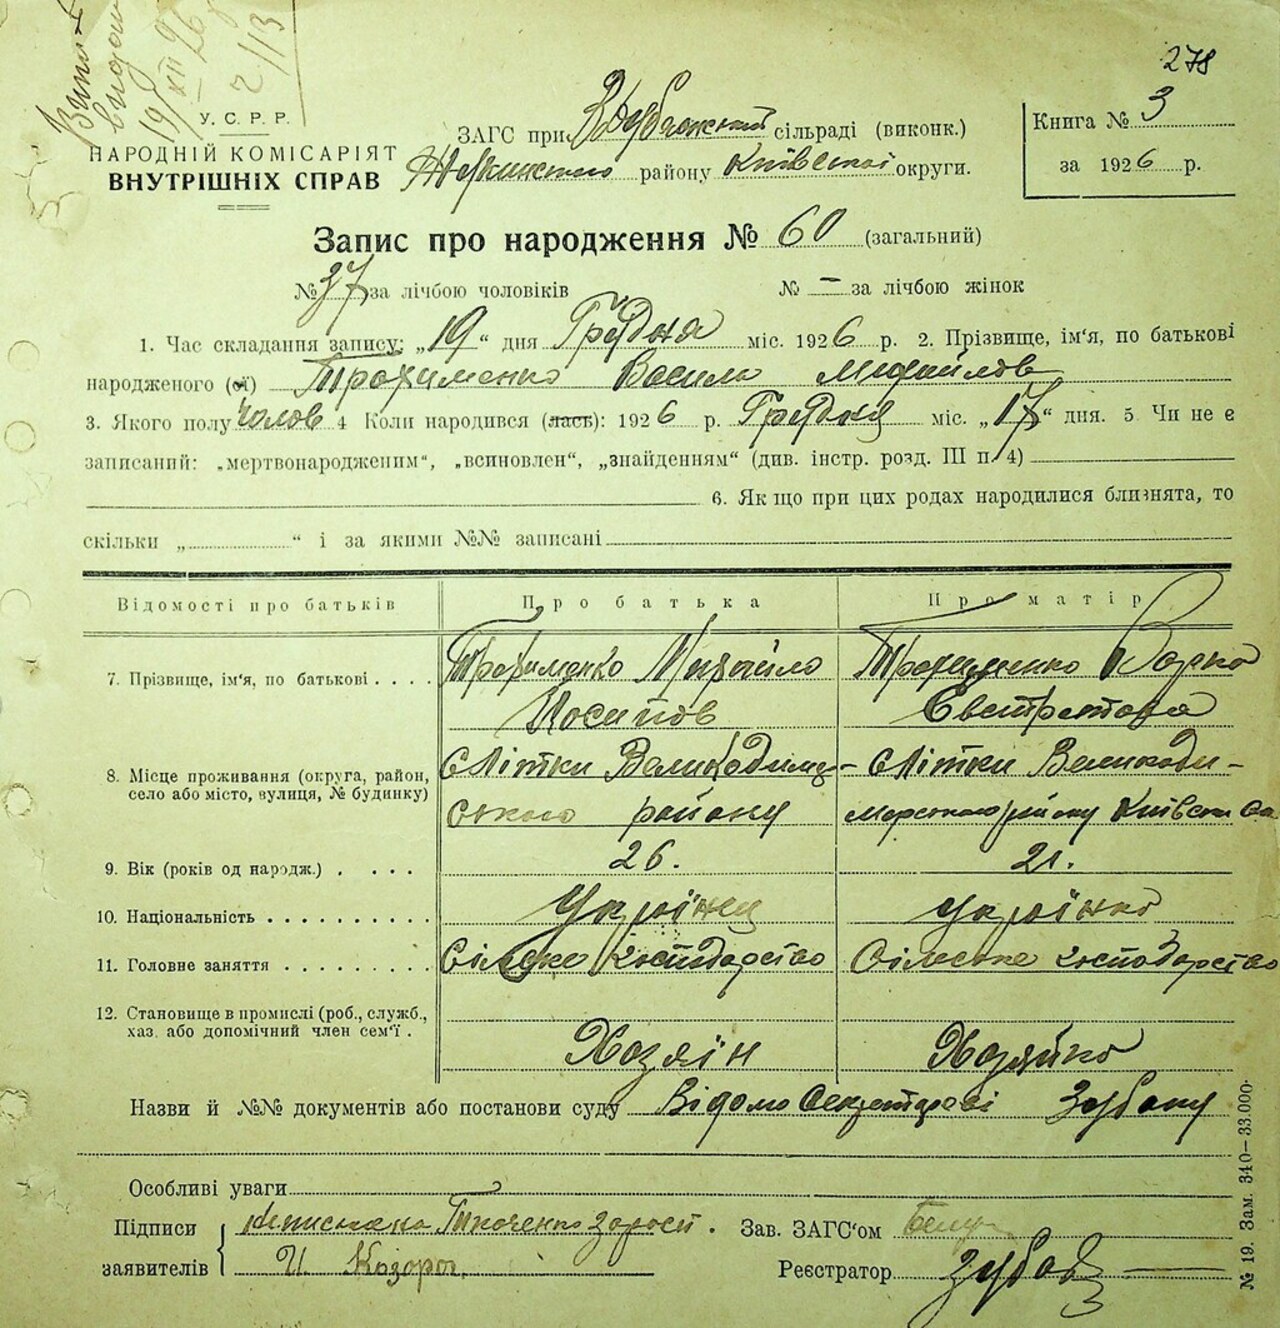 278
У. С. Р. Р.
НАРОДНІЙ КОМІСАРІЯТ
ВНУТРІШНІХ СПРАВ
ЗАГС при сільраді (виконк.)
району Київської округи.
Книга № 3
за 1926 р.
Запис про народження № 60 (загальний)
№ 37 за лічбою чоловіків № – за лічбою жінок
1. Час складання запису: „19“ дня Грудня міс. 1926 р. 2. Прізвище, ім‘я, по батькові
народженого (ої) Трохименко Василь Михайлов
3. Якого полу чолов 4 Коли народився (лась): 1926 р. Грудня міс. „17“ дня. 5 Чи не є
записаний: „мертвонародженим“, „всиновлен“, „знайденням“ (див. інстр. розд. III п. 4)
6. Як що при цих родах народилися близнята, то
скільки „ “ і за якими №№ записані
Відомості про батьків Про батька Про матір
7. Прізвище, ім‘я, по батькові . . . . Трохименко Михайло Трохименко Варка
Йосипов Євстратова
8. Місце проживання (округа, район, с Літки Великодимер- с Літки Великоди-
село або місто, вулиця, № будинку) ського району мерського району Київськ
9. Вік (років од народж.) . . . . 26. 21.
10. Національність . . . . . . . . . . Українец Українка
11. Головне заняття . . . . . . . . . Сільське господарство Сільське господарство
12. Становище в промислі (роб., служб.,
хаз. або допомічний член сем‘ї . Хозяїн Хозяйка
Назви й №№ документів або постанови суду Відомо Секретареві Зубову
Особливі уваги
Підписи
заявителів
Зав. ЗАГС‘ом
Реєстратор Зубов
№ 19. Зам. 340—33.000.